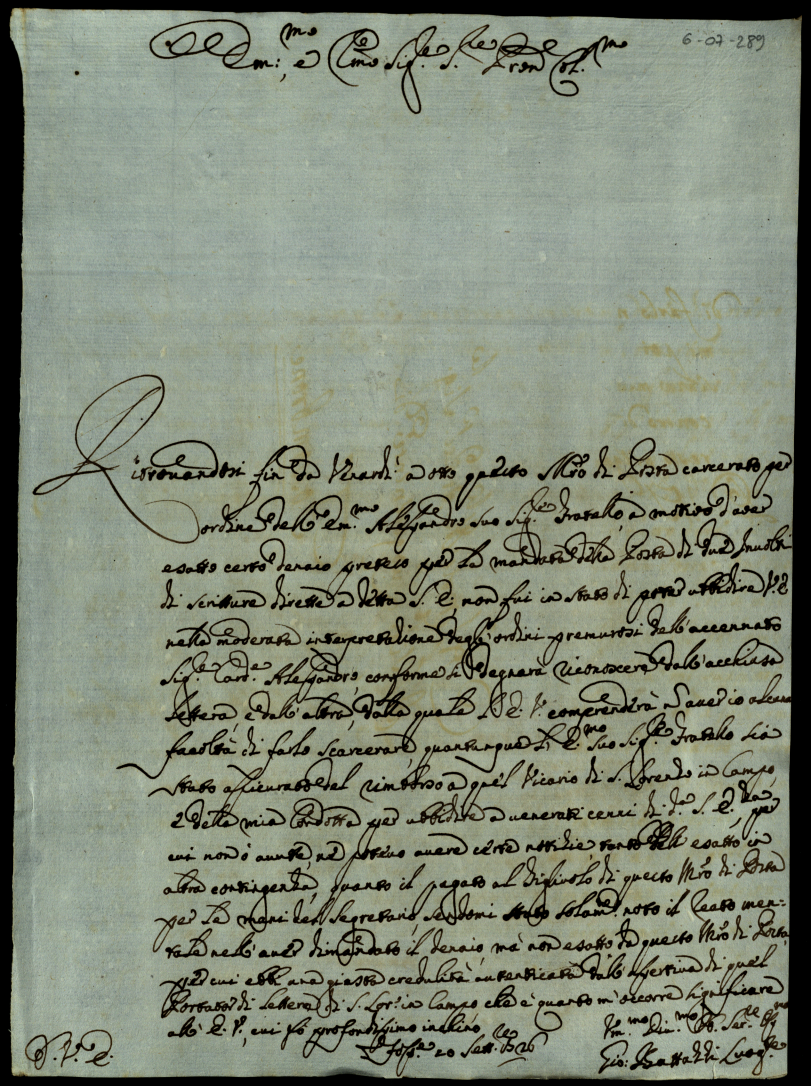 6-07-289
Em:mo, e Rmo Sig.re S.re Pron Col.mo
Ritrovandosi fin da Venardi a otto questo Mro di Posta carcerato per
ordine dell' Em.mo Alessandro Suo Sig.re Fratello a motivo d'aver
esatto certo denaio preteso per la mandata della Posta di due Involti
di scritture dirette a detta S. E. non fui in stato di poter ubbidire V. E.
nella moderata interpretazione degl' ordini premurosi dell' accennato
Sig.re Card.e Alessandro, conforme si degnarà riconoscere dall' acchiusa
lettera, e dall' altra, dalla quale l' E. V. comprenderà n aver io alcuna
facoltà di farlo scarcerare quantunque l' E.mo Suo Sig.re Fratello sia
stato assicurato del rimborso a quel Vicario di S. Lorenzo in Campo,
e della mia condotta per ubbidire a venerati cenni di d.a S. E.za per
cui non ò avute nè potevo avere certe notizie tanto dell' esatto in
altra contingenza, quanto il pagato al figliuolo di questo Mro di Posta
per le mani del Segretario, sendomi stato solam.e noto il reato men-
tale nell' aver dimandato il denaio, mà non esatto da questo Mro di Posta,
per cui ebbi una giusta credulità autenticata dall' assertiva di quel
Portator di Lettere di S. Lor.o in Campo che è quanto m' occorre significare
all' E. V., cui fò profondissimo inchino
Fossombrone 20 Sett.bre 1726
D. V. E.
Um.mo Div.mo Ob. Ser.re Oss.mo
Gio: Batta Luog.te